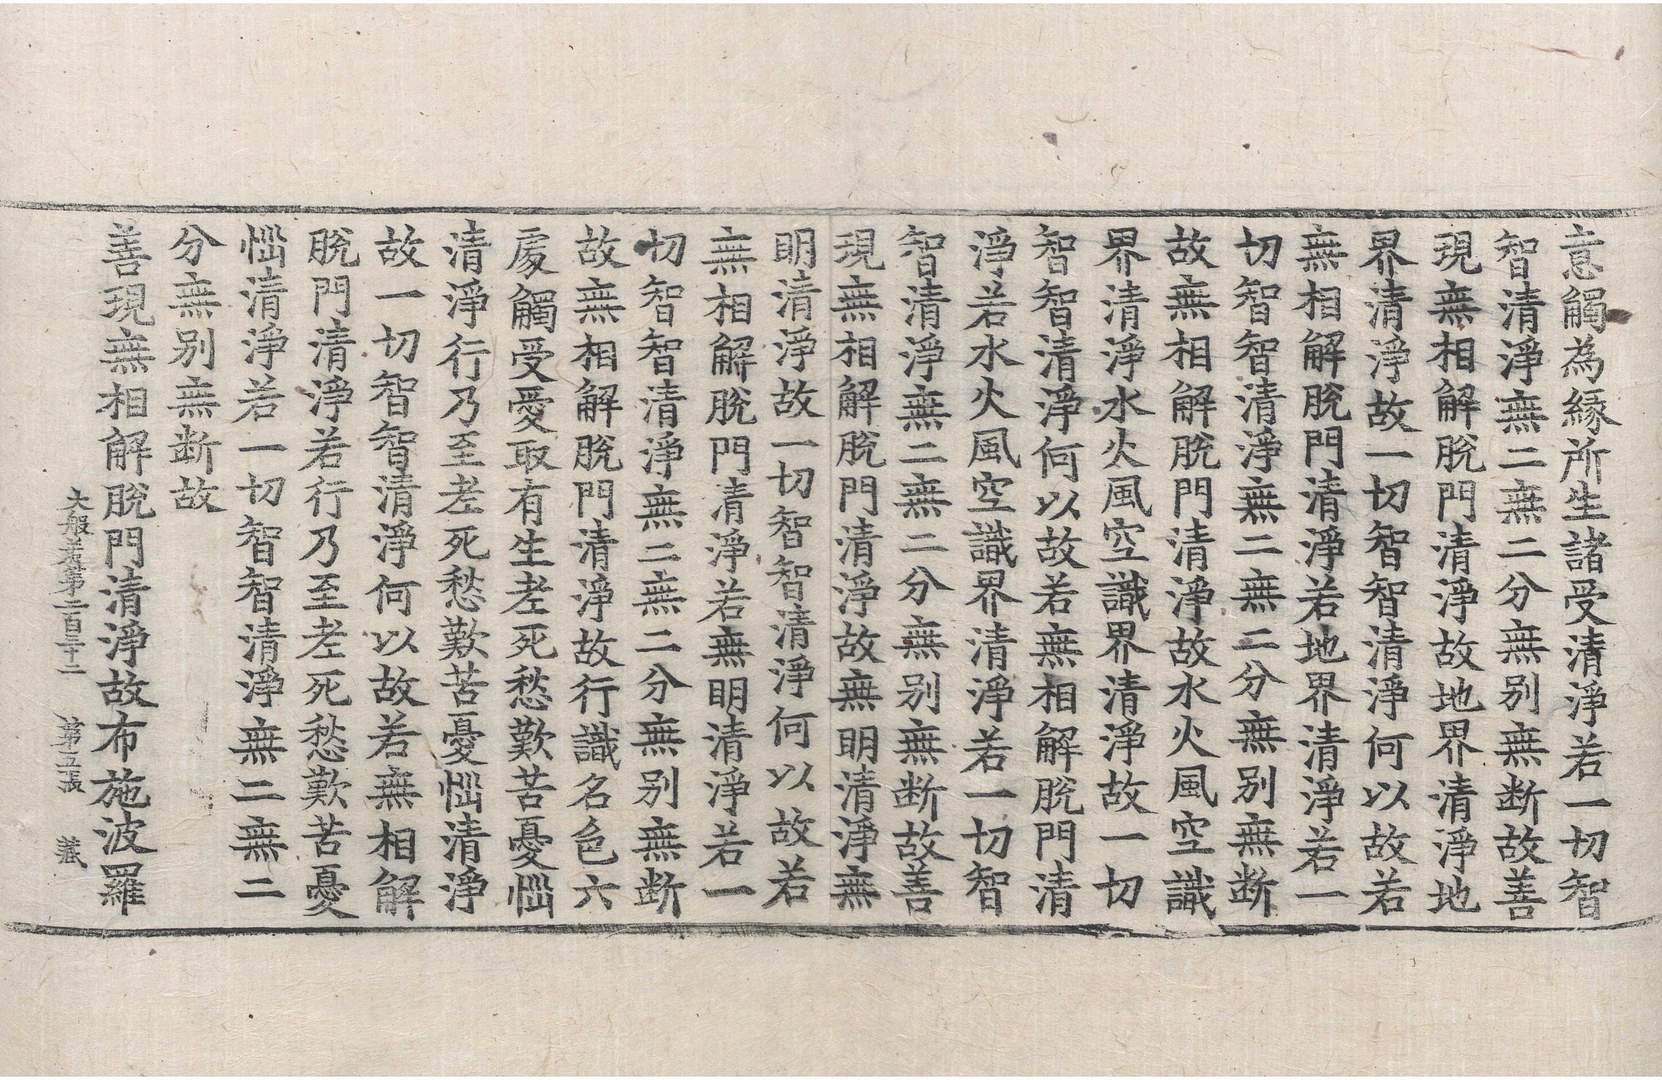 意觸為緣所生諸受清淨若一切智
智清淨無二無二分無別無断故善
現無相解脫門清淨故地界清淨地
界清淨故一切智智清淨何以故若
無相解脫門清淨若地界清淨若一
切智智清淨無二無二分無別無断
故無相解脫門清淨故水火風空識
界清淨水火風空識界清淨故一切
智智清淨何以故若無相解脫門清
淨若水火風空識界清淨若一切智
智清淨無二無二分無別無断故善
現無相解脫門清淨故無明清淨無
明清淨故一切智智清淨何以故若
無相解脫門清淨若無明清淨若一
切智智清淨無二無二分無別無断
故無相解脫門清淨故行識名色六
處觸受愛取有生老死愁歎苦憂惱
清淨行乃至老死愁歎苦憂惱清淨
故一切智智清淨何以故若無相解
脫門清淨若行乃至老死愁歎苦憂
惱清淨若一切智智清淨無二無二
分無別無断故
善現無相解脫門清淨故布施波羅
大般若第二百三十二 第五張